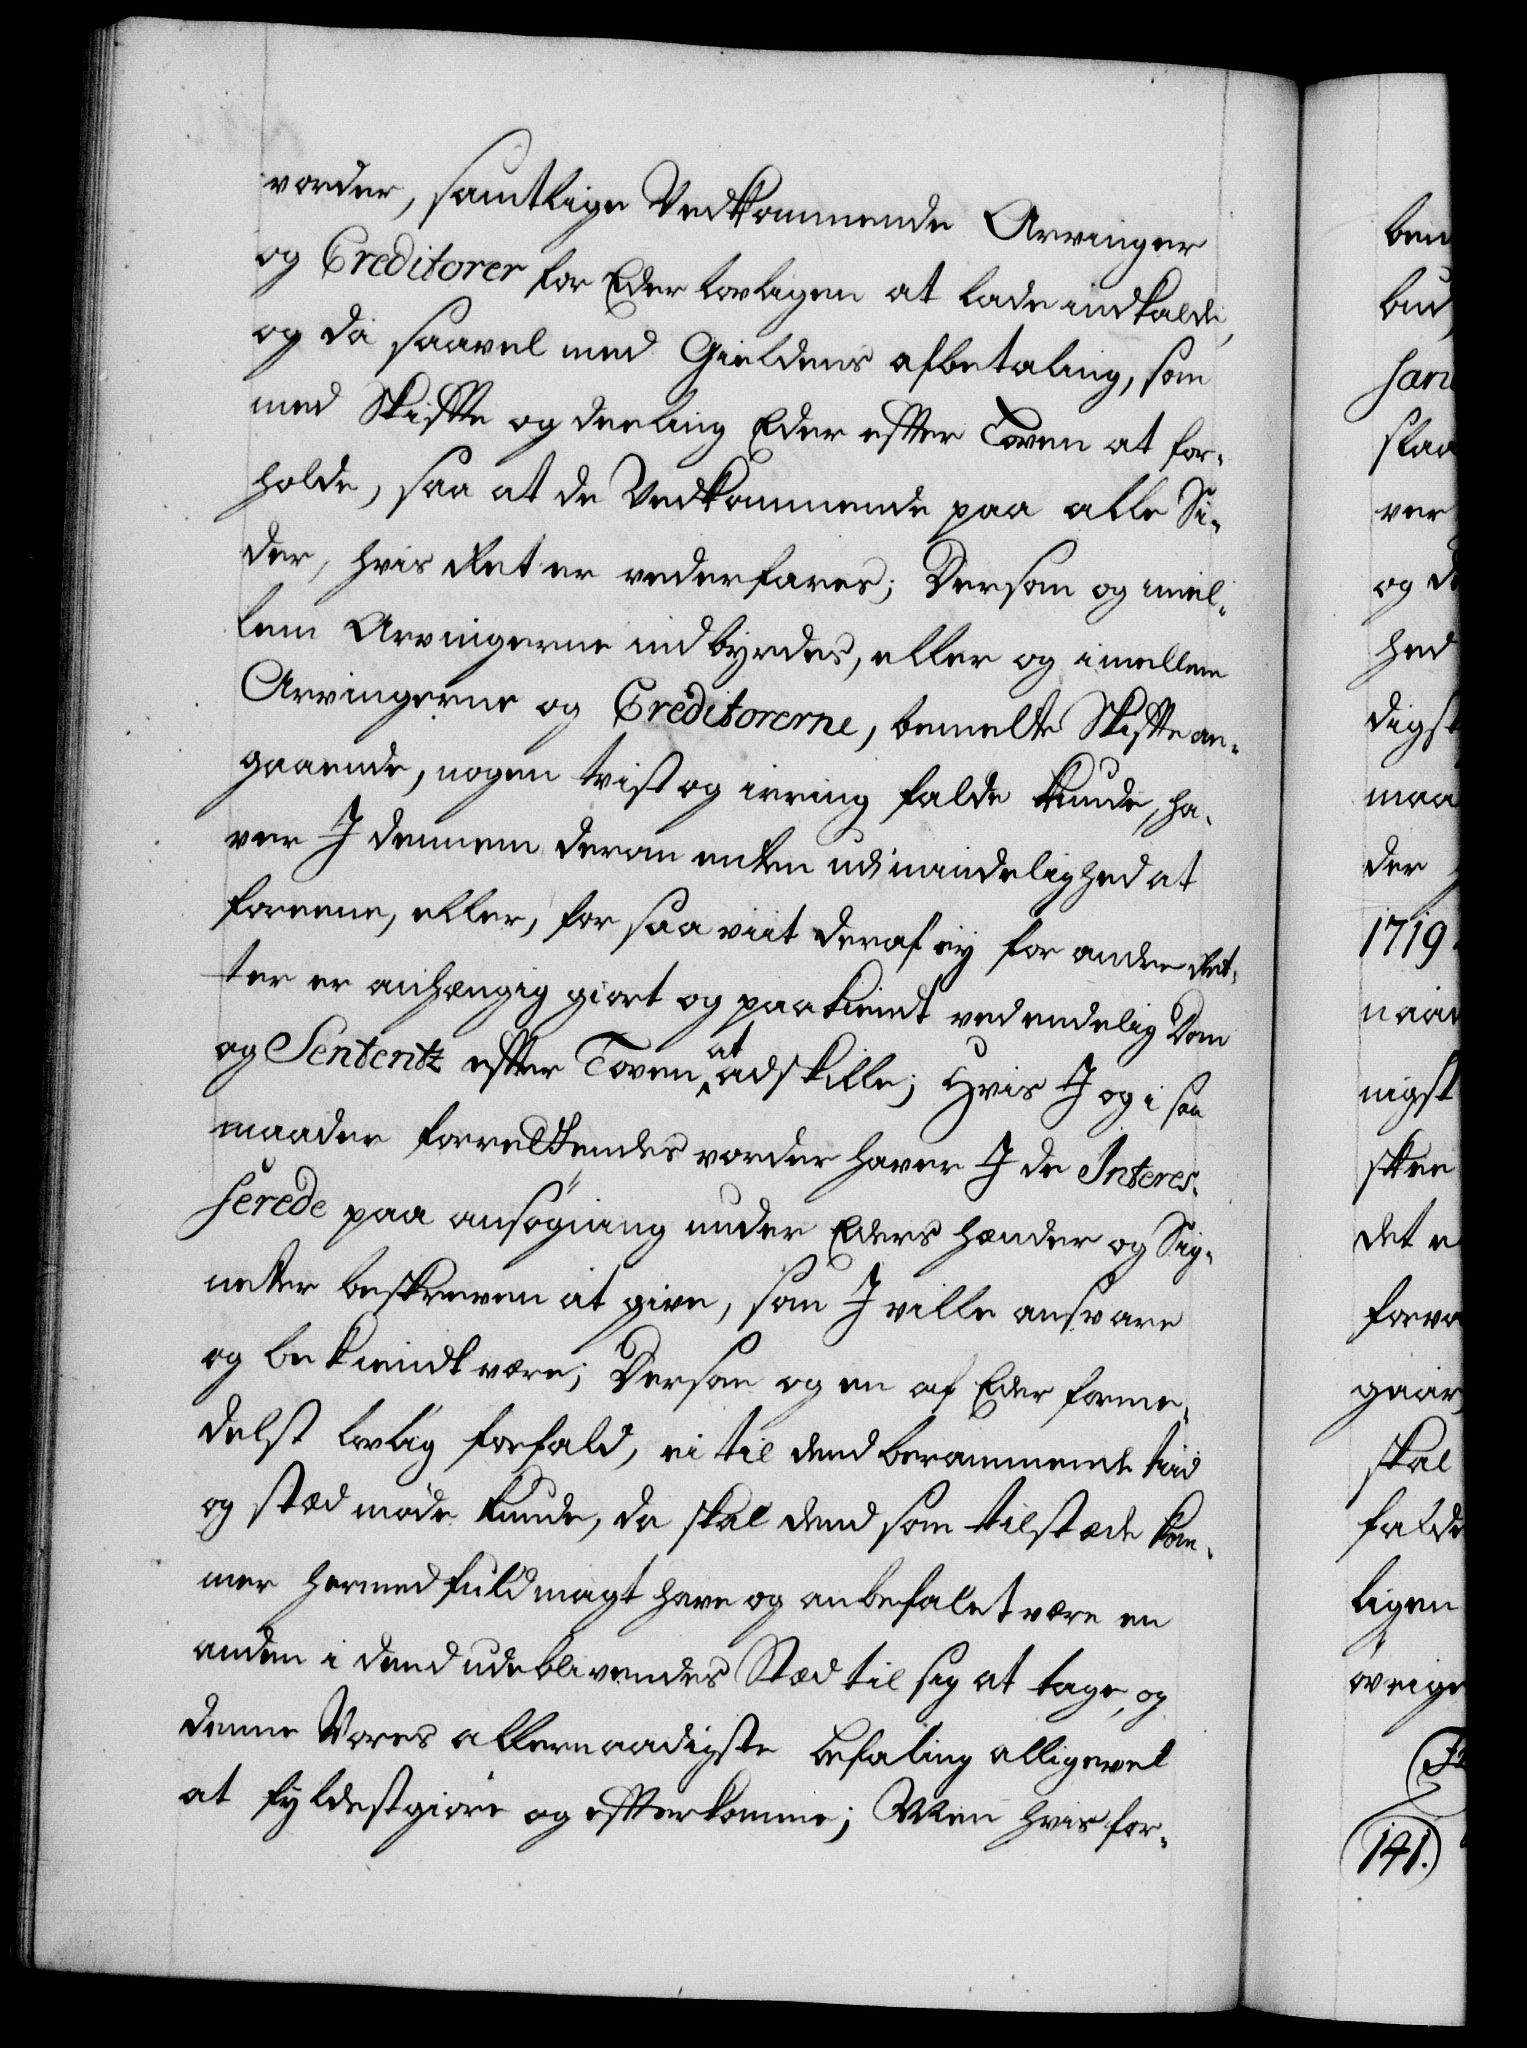 vorder, samtlige Vedkommende Arvinger
og Creditorer for Eder lovligen at lade indkalde,
og da saavel med Gieldens afbetaling, som
med Skiffte og deeling Eder effter Loven at for-
holde, saa at de Vedkommende paa alle Si-
der, hvis Ret er vederfares; Dersom og imel-
lem Arvingerne indbyrdes, eller og imellem
Arvingerne og Creditorerne, bemelte Skiffte an-
gaaende, nogen tvist og irring falde kunde, ha-
ver I dennem derom enten udi mindelighed at
foreene, eller, for saa viit deraf ey for andre Ret-
ter er anhængig giort og paakiendt ved endelig Dom
og Sententz effter Loven at adskille; Hvis I og i saa
maader forrettendes vorder haver I de Interes-
serede paa ansøgning under Eders hænder og Sig-
netter beskreven at give, som I ville ansvare
og bekiendt være; Dersom og en af Eder forme-
delst lovlig forfald, ei til dend berammende tiid
og stæd møde kunde, da skal dend som tilstæde kom-
mer hermed fuldmagt have og anbefalet være en
anden i dend udeblivendes Stæd til sig at tage, og
denne Vores allernaadigste befaling alligevel
at fyldestgiøre og effterkomme; Men hvis for-
ben
bud,
san
staa
ver
og d
hed
digst
maa
der
1719.
naad
nigst
skee
det e
forva
gaar,
skal
falde
ligen
øvrige
141.)